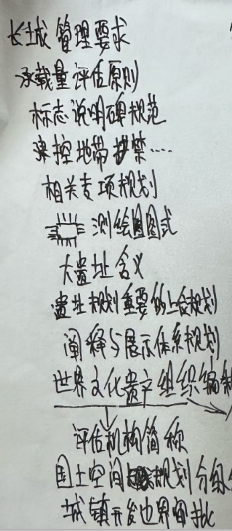 长城管理要求
承载量评估原则
标志说明碑规范
建控地带 禁……
相关专项规划
测绘图式
大遗址含义
遗址规划重要的上会规划
阐释与展示体系规划
世界文化遗产组织编制
评估机构简称
国土空间规划分级
城镇开发边界 审批